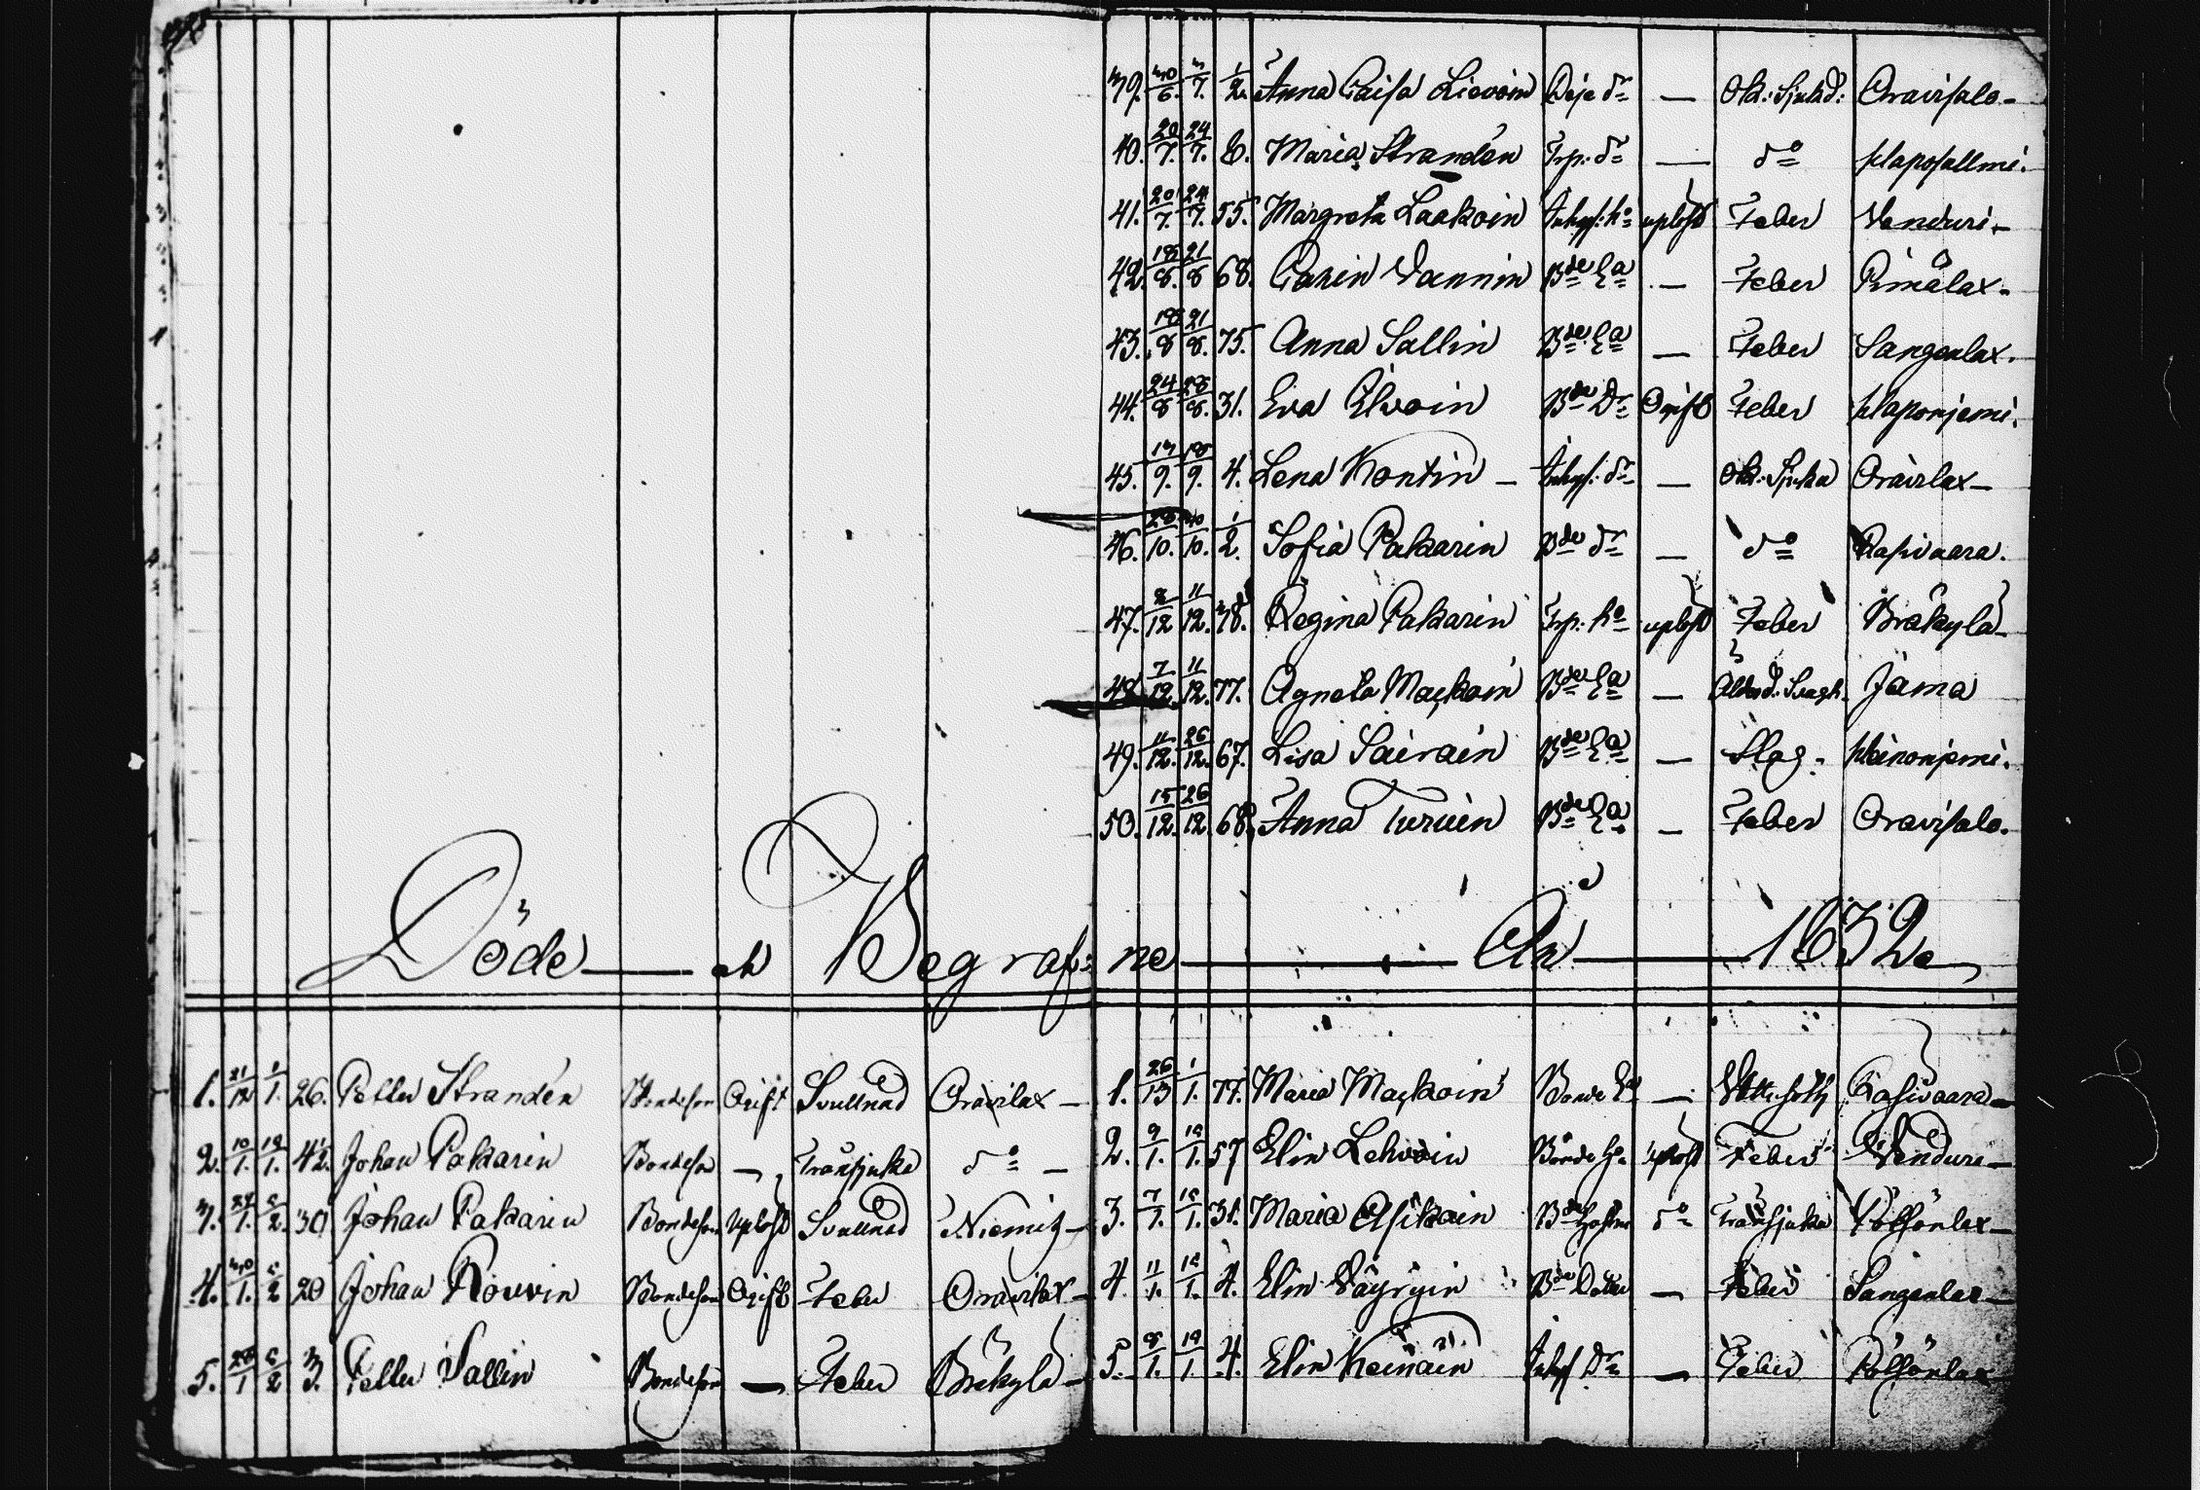 39. 30/6. 3/7. 1/2. Anna Caisa Lievoin Deje dr — Ok: Sjukd: Oravisalo —
40. 20/7. 24/7. 6. Maria Stranden Trp: dr — do Haposallmi.
41. 20/7. 24/7. 55. Margreta Laakoin Inhys: ho uplöst Feber Venduri —
42. 18/8. 21/8 68. Carin Vannin Bde Ea — Feber Rimålax.
43. 18/8 21/8. 75. Anna Sallin Bde Ea — Feber Sangenlax.
44. 24/8 28/8. 31. Eva Elvoin Bde Dr Ogift Feber Haponjemi.
45. 13/9. 18/9. 4. Lena Kontin — Inhys: dr — Ok: Sjuka Oravilax —
46. 28/10. 30/10. 1/2. Sofia Pakarin Bde dr — do Rasivaara.
47. 8/12 11/12. 38. Regina Pakarin Trp: ho uplöst Feber Bräkylä —
48. 7/12. 11/12. 77. Agneta Mackoin Bde Ea — Ålderd. Svagh. Jama
49. 11/12. 26/12. 67. Lisa Sairain Bde Ea — Slag. Heinonjemi.
50. 15/12. 26/12. 68. Anna Turuin Bde Ea — Feber Oravisalo.
Döde — och Begraf: ne — År — 1832
1. 21/12 1/1. 26. Petter Stranden Bondeson Ogift Svullnad Oravilax —
2. 10/1. 19/1. 42. Johan Pakarin Bondeson — Trånsjuka do —
3. 27/1. 2/2. 30 Johan Pakarin Bondeson Uplöst Svullnad Niemis —
4. 30/1. 2/2 20 Johan Rouvin Bondeson Ogift Feber Oravilax —
5. 28/1 2/2 3. Petter Sallin Bondeson — Feber Bräkylä —
1. 26/13 1/1. 77. Maria Mackoin Bonde Ea — Rasivaara —
2. 9/1. 19/1. 57 Elin Lehvoin Bonde ho Uplöst Feber Venduri —
3. 7/1. 15/1. 31. Maria Asikain Bde do Trånsjuka Pötsönlax —
4. 11/1. 15/1. 4. Elin Väyryin Bde Dotter — Feber Sangenlax —
5. 8/1. 19/1. 4. Elin Keinäin Inhys Dr — Feber Pötsönlax